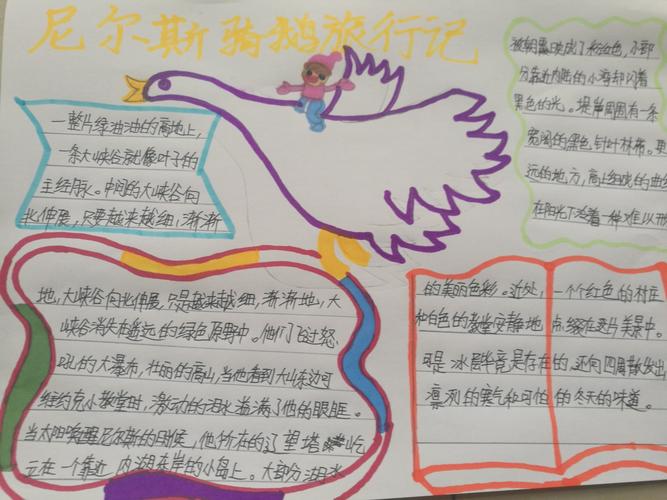 尼尔斯骑鹅旅行记
一整片绿油油的高地上，
一条大峡谷就像叶子的
主经脉。中间的大峡谷向
北伸展，只要越来越细，渐渐
地，大峡谷向北伸展，只是越来越细，渐渐地，大
峡谷消失在遥远的绿色原野中。他们飞过怒
吼的大瀑布，壮丽的高山，当他看到大山东边河
纽约克小教堂时，激动的泪水溢满了他的眼眶。
当太阳唤醒尼尔斯的时候，他所在的辽望塔屹
立在一个靠近内湖东岸的小岛上。大部分湖水
被朝霞映成了彩红色，小部
分靠近内陆的小湾却闪着
黑色的光。堤岸周围有一条
宽阔的黑色针叶林带。更
远的地方，高上线的曲
在阳光下泛着一种难以形
的美丽色彩。近处，一个红色的村庄
和白色的教堂安静地点缀在这片美景中。
可是冰层毕竟是存在的，还向四周散发出
凛冽的寒气和可怕的冬天的味道。